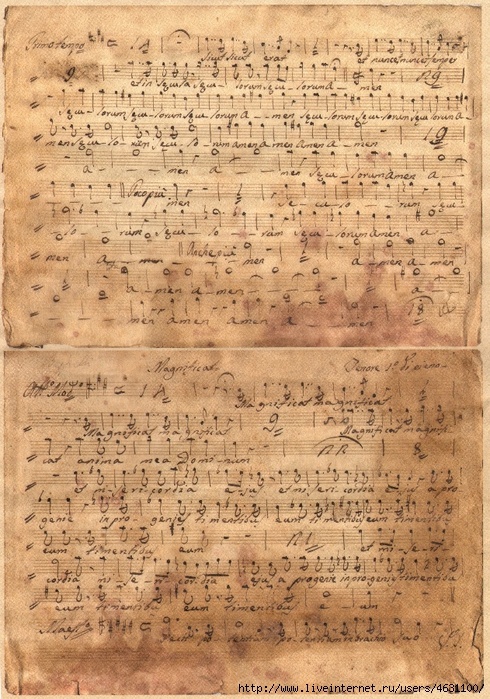 Primo tempo
Sicut sicut erat et nunc et nunc et semper
et in secula secu lorum seculorum A men
secu lorum seculorum seculorum A men seculorum seculorum seculorum A
men secu lo rum secu lo rum amen amen amen A men
a men a men secu lorum amen a
Poco più men se cu lo rum secu
lo rum secu lo rum seculorum amen a
Anche più
men a men a men a men
a men a men a men
men amen amen a men
Magnificat Tenore 1º Ripieno
Magnificat magnificat
Magnificat magnificat Magnificat magnifi
cat anima mea Dominum
Et misericordia ejus et misericordia ejus a pro
genie in progenies timentibus eum timentibus eum timentibus
eum timentibus eum et mi se ri
cordia mi se ri cordia ejus a progenie in progenie timentibus
eum timentibus eum timentibus e um
Maestº Fecit potentiam potentiam in brachio suo
http://www.liveinternet.ru/users/4631100/